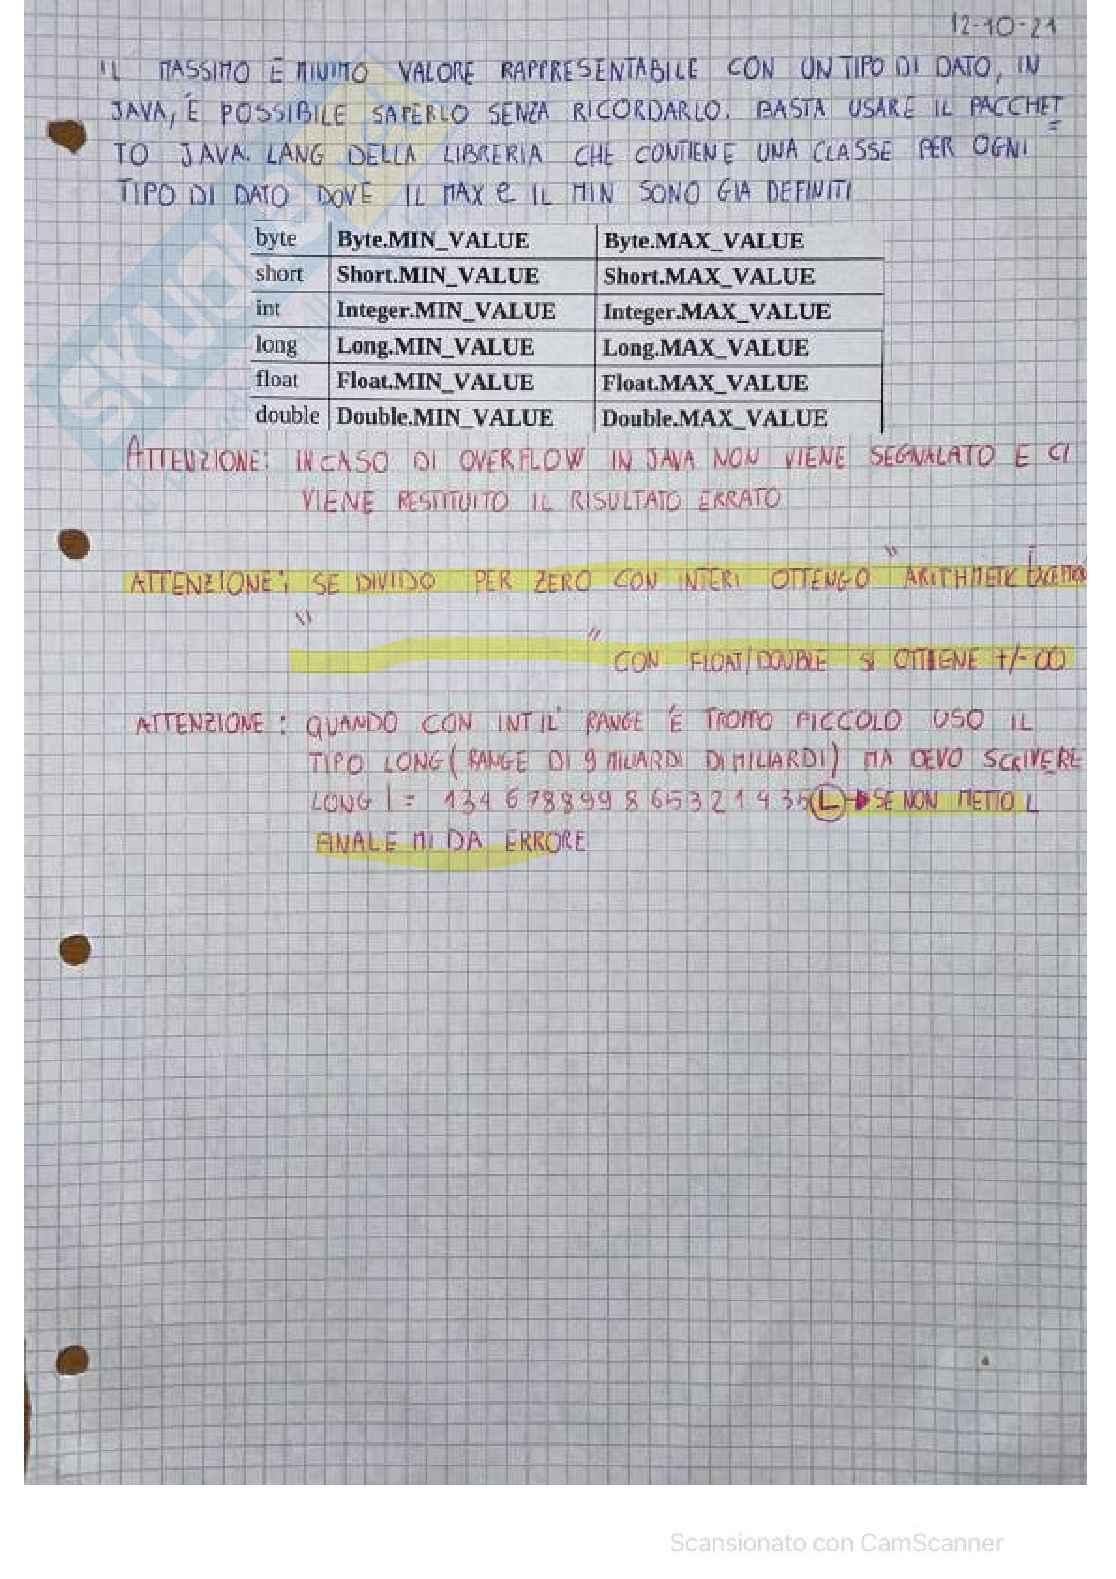 12-10-21
IL MASSIMO E MINIMO VALORE RAPPRESENTABILE CON UN TIPO DI DATO, IN
JAVA, È POSSIBILE SAPERLO SENZA RICORDARLO. BASTA USARE IL PACCHET
TO JAVA. LANG DELLA LIBRERIA CHE CONTIENE UNA CLASSE PER OGNI
TIPO DI DATO DOVE IL MAX e IL MIN SONO GIA DEFINITI
byte Byte.MIN_VALUE Byte.MAX_VALUE
short Short.MIN_VALUE Short.MAX_VALUE
int Integer.MIN_VALUE Integer.MAX_VALUE
long Long.MIN_VALUE Long.MAX_VALUE
float Float.MIN_VALUE Float.MAX_VALUE
double Double.MIN_VALUE Double.MAX_VALUE
ATTENZIONE: IN CASO DI OVERFLOW IN JAVA NON VIENE SEGNALATO E CI
VIENE RESTITUITO IL RISULTATO ERRATO
ATTENZIONE: SE DIVIDO PER ZERO CON INTERI OTTENGO "ARITHMETIC EXCEPTION
" " CON FLOAT/DOUBLE SI OTTIENE +/- ∞
ATTENZIONE: QUANDO CON INT IL RANGE È TROPPO PICCOLO USO IL
TIPO LONG (RANGE DI 9 MILIARDI DI MILIARDI) MA DEVO SCRIVERE
LONG l = 1346788998653219435L → SE NON METTO L
FINALE MI DA ERRORE
Scansionato con CamScanner